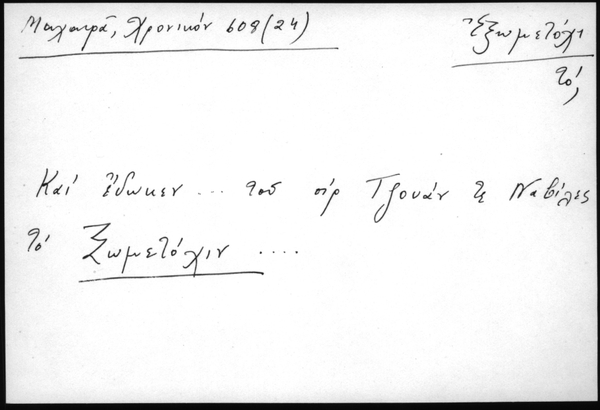 Μαχαιρᾶ, Χρονικόν 608 (24)
Ἐξωμετόχι
τό,
Καί ἔδωκεν ... τοῦ σίρ Τζουάν τε Ναβίλες
τό Ξωμετόχιν ....